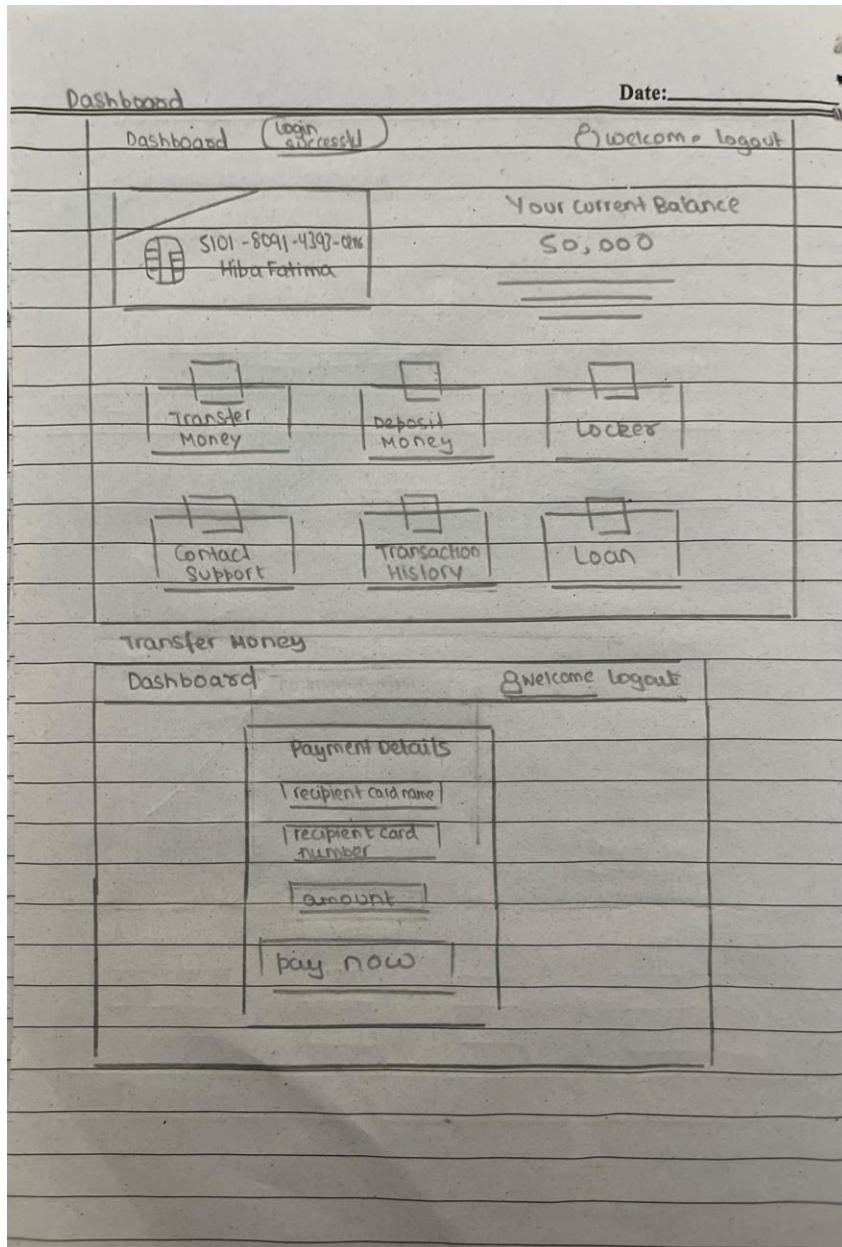 Dashboard
Date:
Dashboard
Login
successful
welcome
logout
Your current Balance
5101-8091-4393-0216
50,000
Hiba Fatima
Transfer
Money
Deposit
Money
Locker
Contact
Support
Transaction
History
Loan
Transfer Money
Dashboard
welcome
logout
Payment Details
recipient card name
recipient card
number
amount
pay now